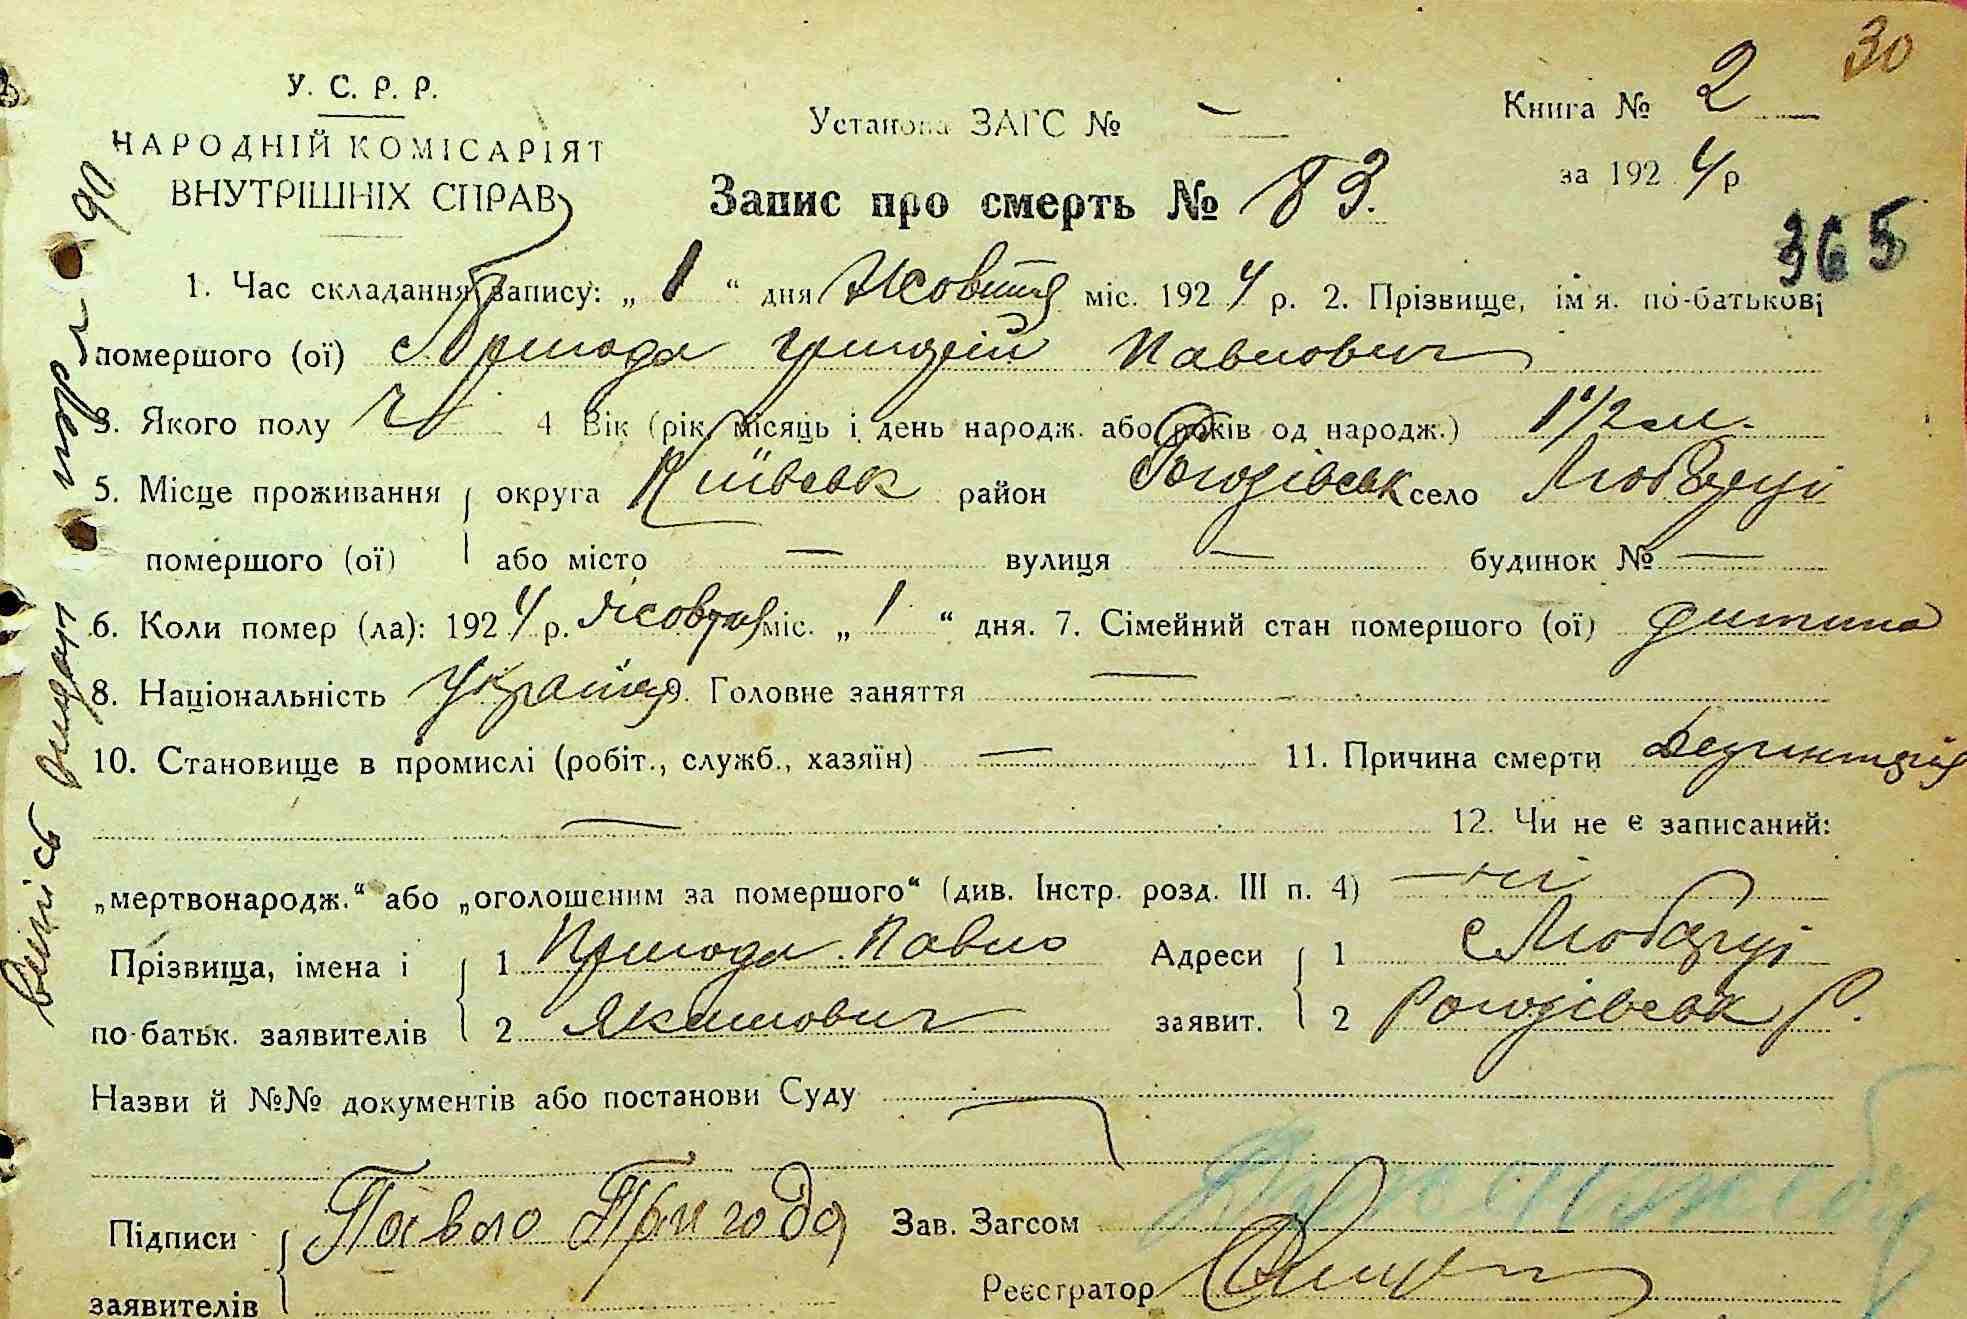 30
У. С. Р. Р.
НАРОДНІЙ КОМІСАРІЯТ
ВНУТРІШНІХ СПРАВ
Установа ЗАГС № —
Книга № 2
за 1924 р
Запис про смерть № 83.
365
1. Час складання запису: „ 1 “ дня Жовтня міс. 1924 р. 2. Прізвище, ім'я. по-батькові
помершого (ої) Пригода Григорій Павлович
3. Якого полу ч 4 Вік (рік, місяць і день народж. або років од народж.) 1 1/2 м.
5. Місце проживання округа Київськ район Рогозівськ село Любарці
помершого (ої) або місто — вулиця — будинок № —
6. Коли помер (ла): 1924 р. Жовтня міс. „ 1 “ дня. 7. Сімейний стан помершого (ої) дитина
8. Національність Україн. 9. Головне заняття —
10. Становище в промислі (робіт., служб., хазяїн) — 11. Причина смерти Дезинтерія
— 12. Чи не є записаний:
„мертвонародж.“ або „оголошеним за помершого“ (див. Інстр. розд. III п. 4) — ні
Прізвища, імена і 1 Пригода Павло Адреси 1 с Любарці
по-батьк. заявителів 2 Якимович заявит. 2 Рогозівськ Р.
Назви й №№ документів або постанови Суду —
Підписи Павло Пригода Зав. Загсом
заявителів Реєстратор
Випись видана
90